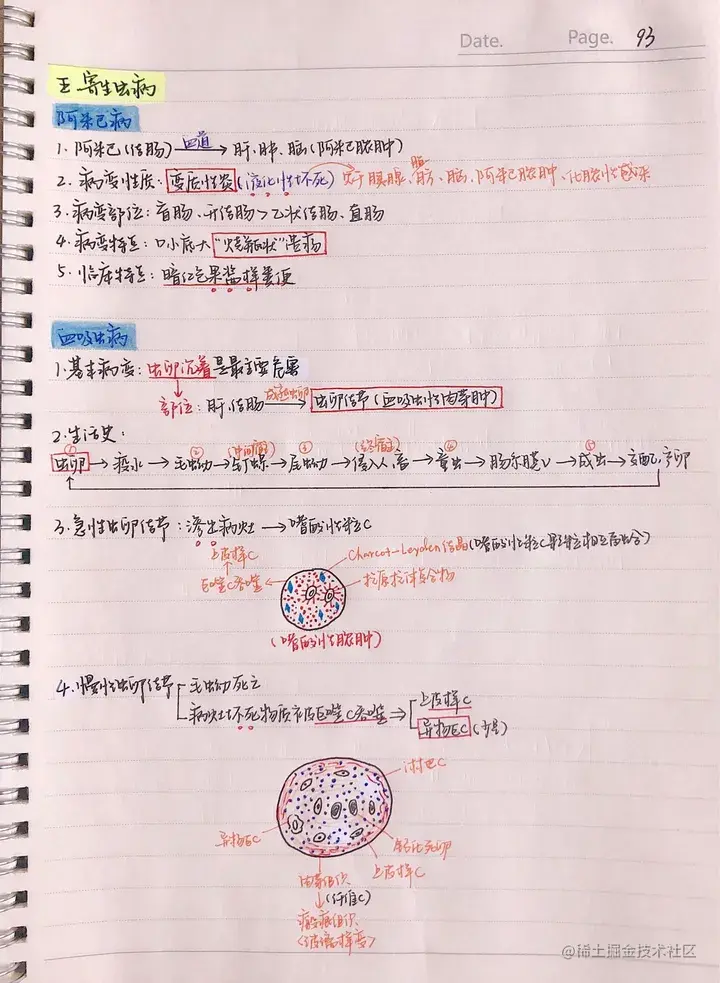 Date. Page. 93
五 寄生虫病
阿米巴病
1. 阿米巴(结肠) 血道→ 肝、肺、脑(阿米巴脓肿)
2. 病变性质: 变质性炎(液化性坏死) 好于胰腺、脂肪、脑、阿米巴脓肿、化脓性感染
3. 病变部位: 盲肠、升结肠>乙状结肠、直肠
4. 病变特点: 口小底大"烧瓶状"溃疡
5. 临床特点: 暗红色果酱样粪便
血吸虫病
1. 基本病变: 虫卵沉着是最主要危害
部位: 肝、结肠 成熟虫卵→ 虫卵结节(血吸虫性肉芽肿)
2. 生活史:
① ② (中间宿主) ③ (终宿主) ④ ⑤
虫卵→疫水→毛蚴→钉螺→尾蚴→侵入人、畜→童虫→肠系膜V→成虫→交配、产卵
3. 急性虫卵结节: 渗出病灶→嗜酸性粒C
上皮样C
Charcot-Leyden结晶(嗜酸性粒C颗粒相互融合)
巨噬C吞噬
抗原抗体复合物
(嗜酸性脓肿)
4. 慢性虫卵结节 毛蚴死亡
病灶坏死物质被巨噬C吞噬⇒ 上皮样C
异物巨C(少量)
淋巴C
异物巨C
钙化死卵
上皮样C
肉芽组织
↓(纤维C)
瘢痕组织
(玻璃样变)
@稀土掘金技术社区